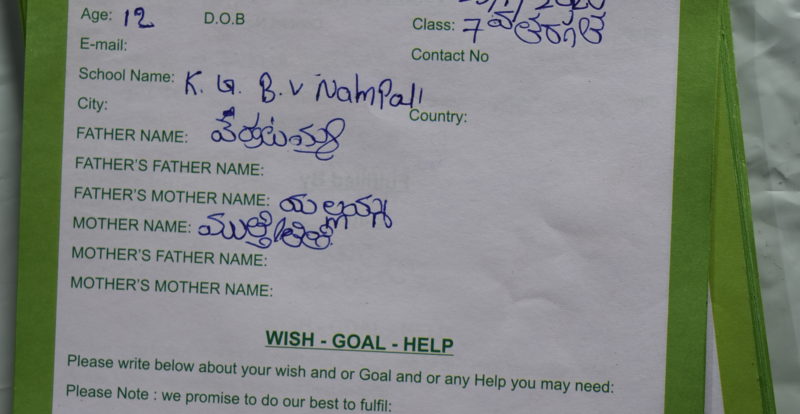 Age: 12 D.O.B Class: 7 వ తరగతి
E-mail: Contact No
School Name: K. G. B. V Nampali
City: Country:
FATHER NAME:
FATHER'S FATHER NAME:
FATHER'S MOTHER NAME: యల్లయ్య
MOTHER NAME:
MOTHER'S FATHER NAME:
MOTHER'S MOTHER NAME:
WISH - GOAL - HELP
Please write below about your wish and or Goal and or any Help you may need:
Please Note : we promise to do our best to fulfil: